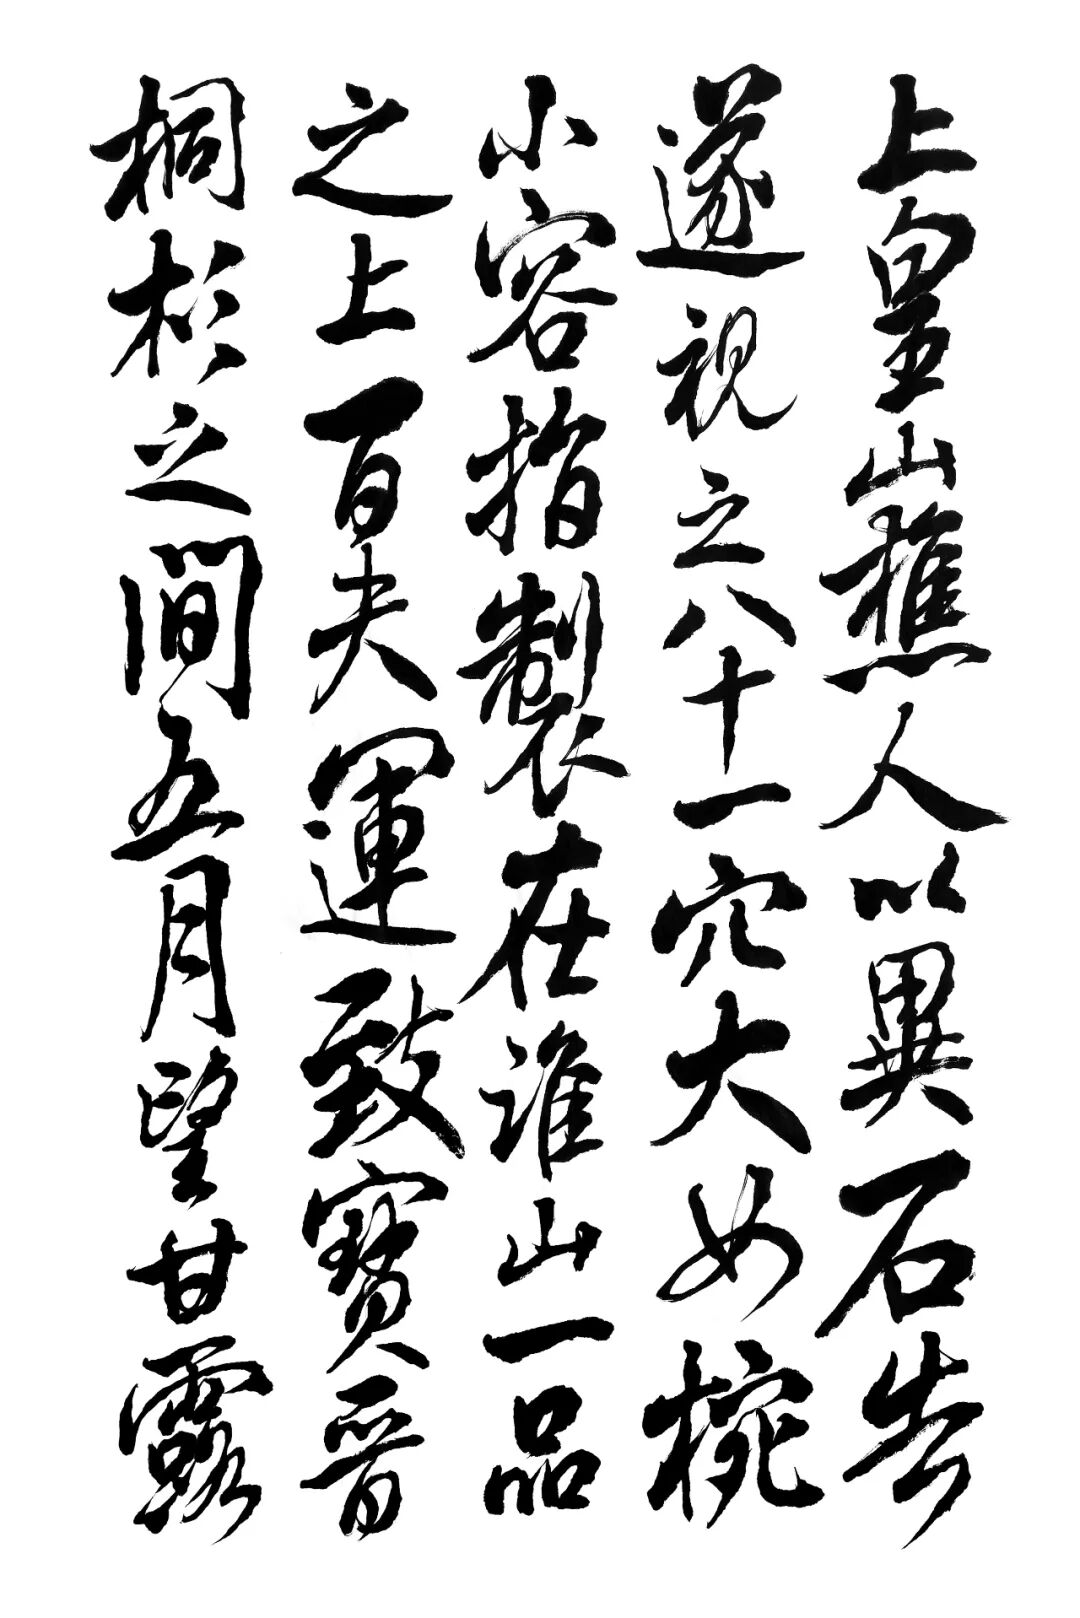 上皇山樵人以異石告
遂視之八十一穴大如椀
小容指製在淮山一品
之上百夫運致寶晉
桐杉之間五月望甘露